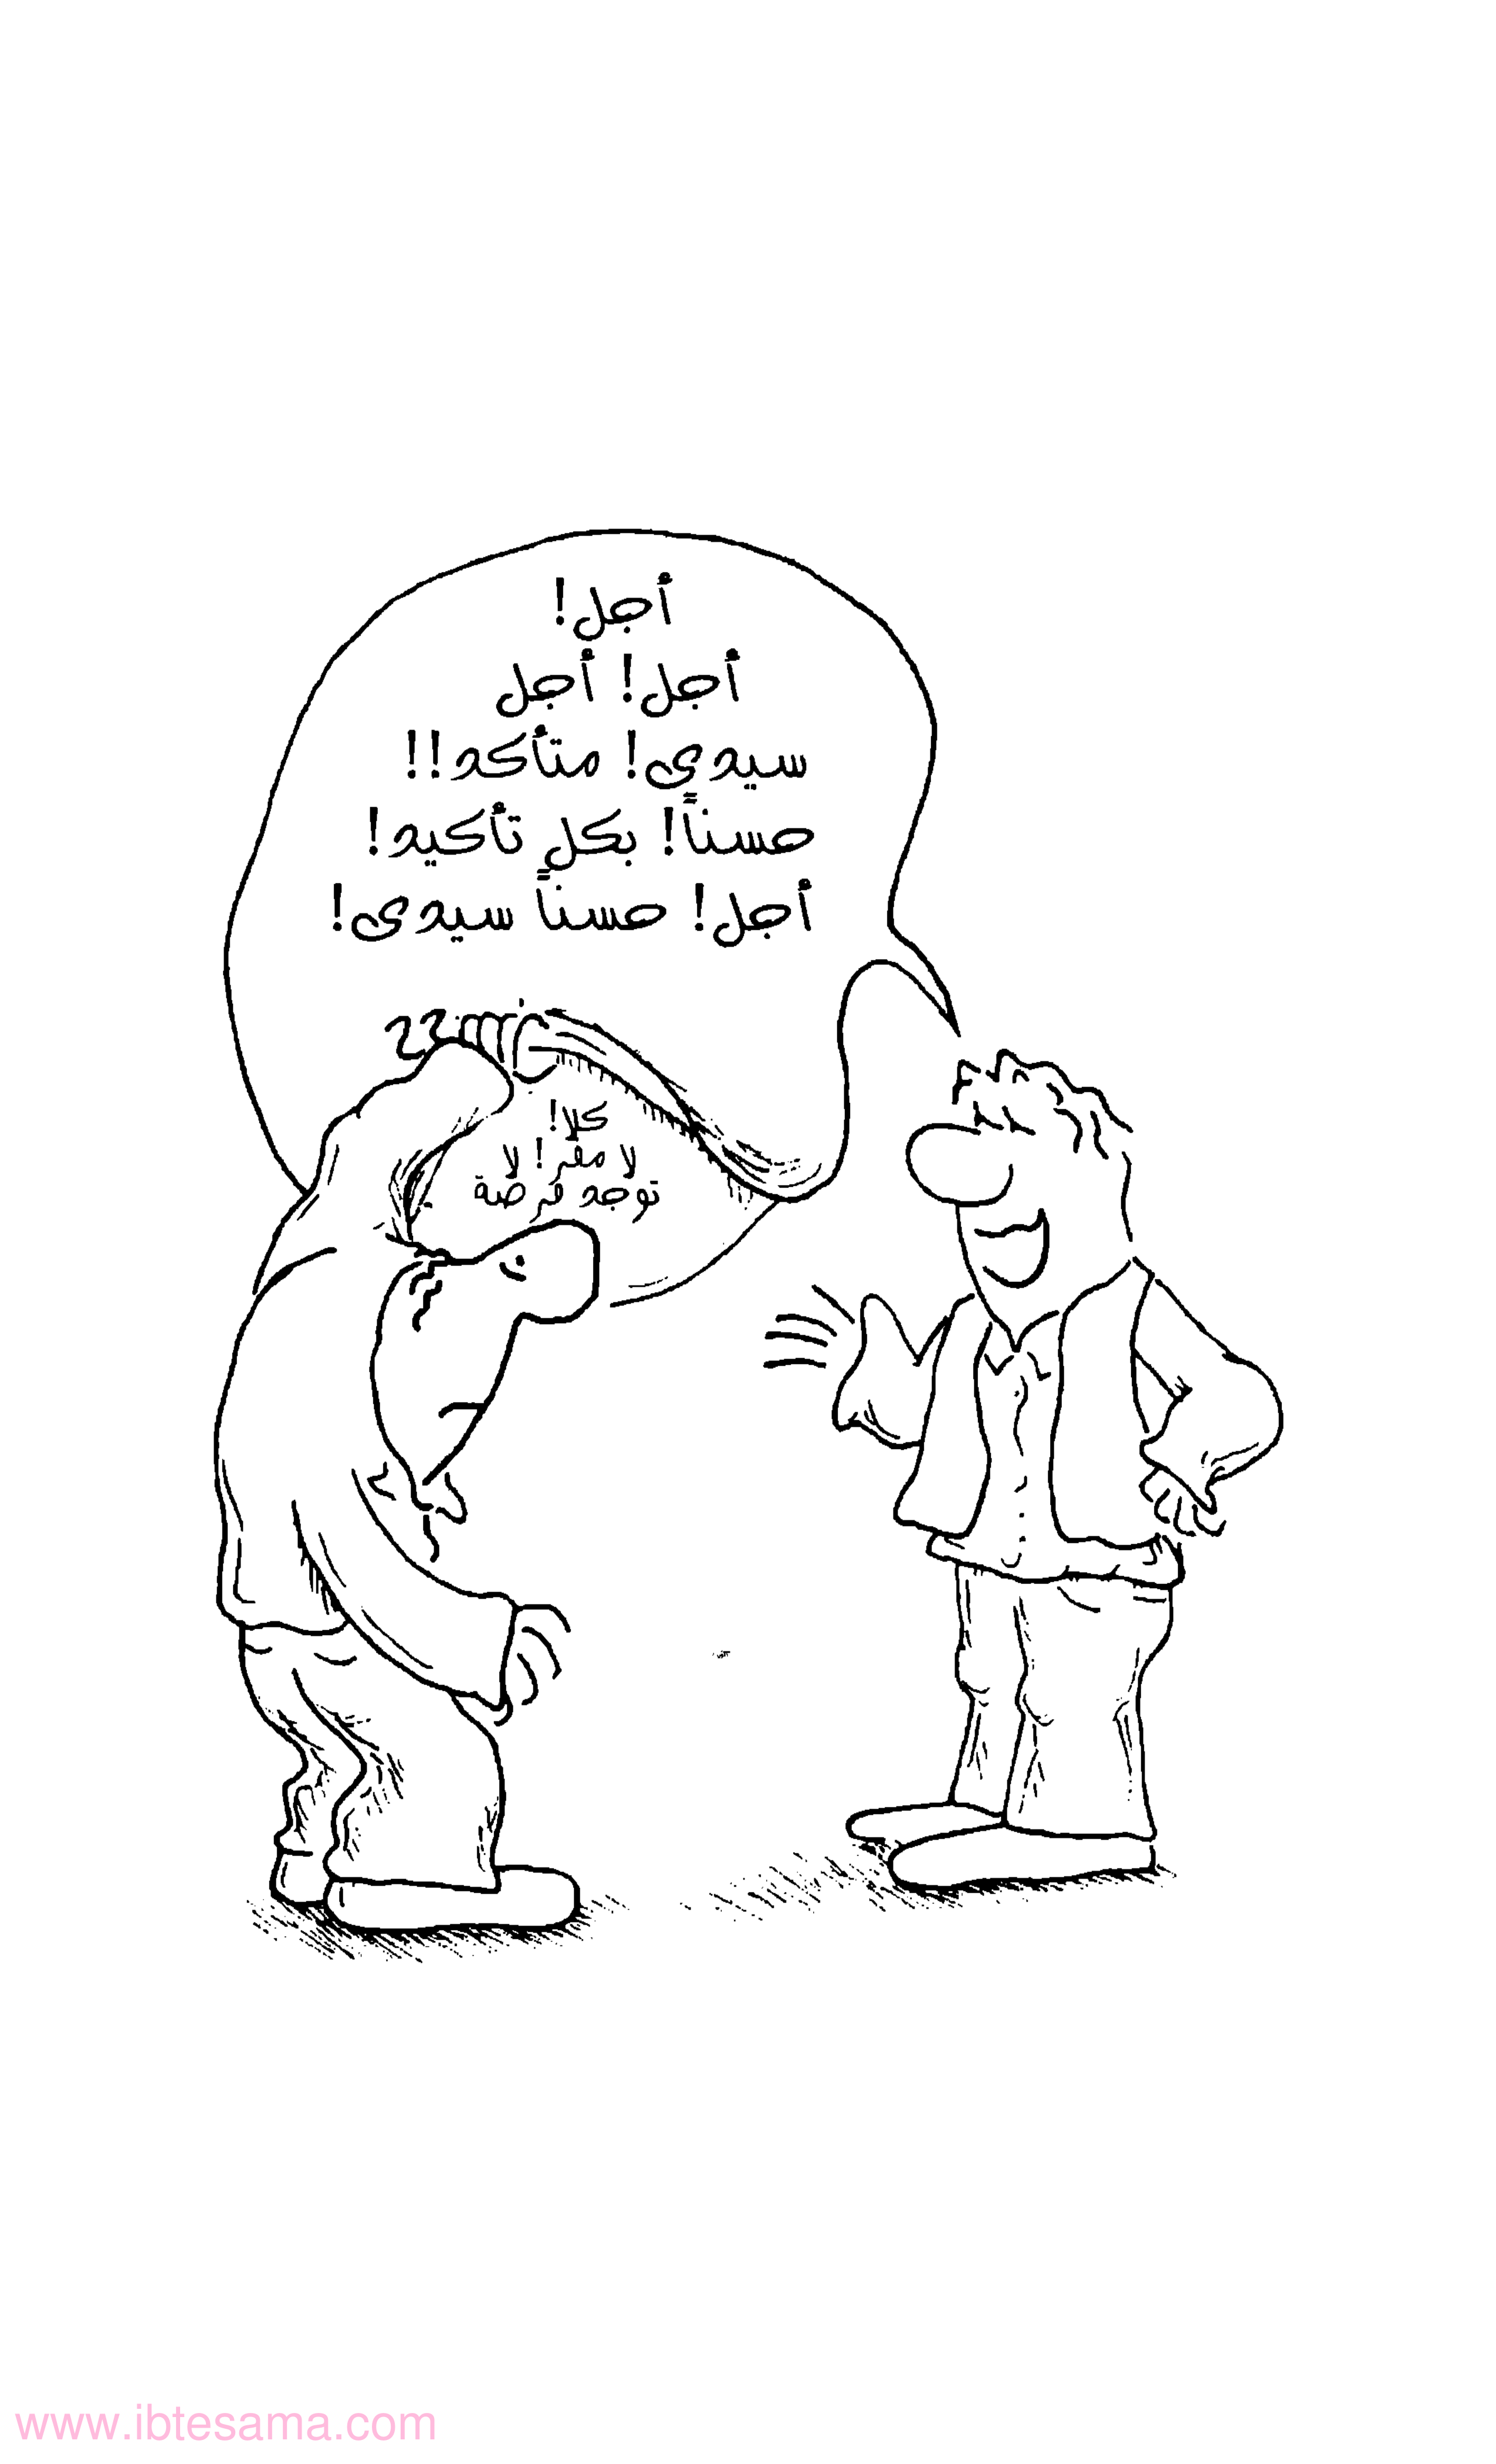 أجل!
أجل! أجل
سيدى! متأكد!!
حسناً! بكل تأكيد!
أجل! حسناً سيدى!
كلا!
لا مفر! لا
توجد فرصة
www.ibtesama.com